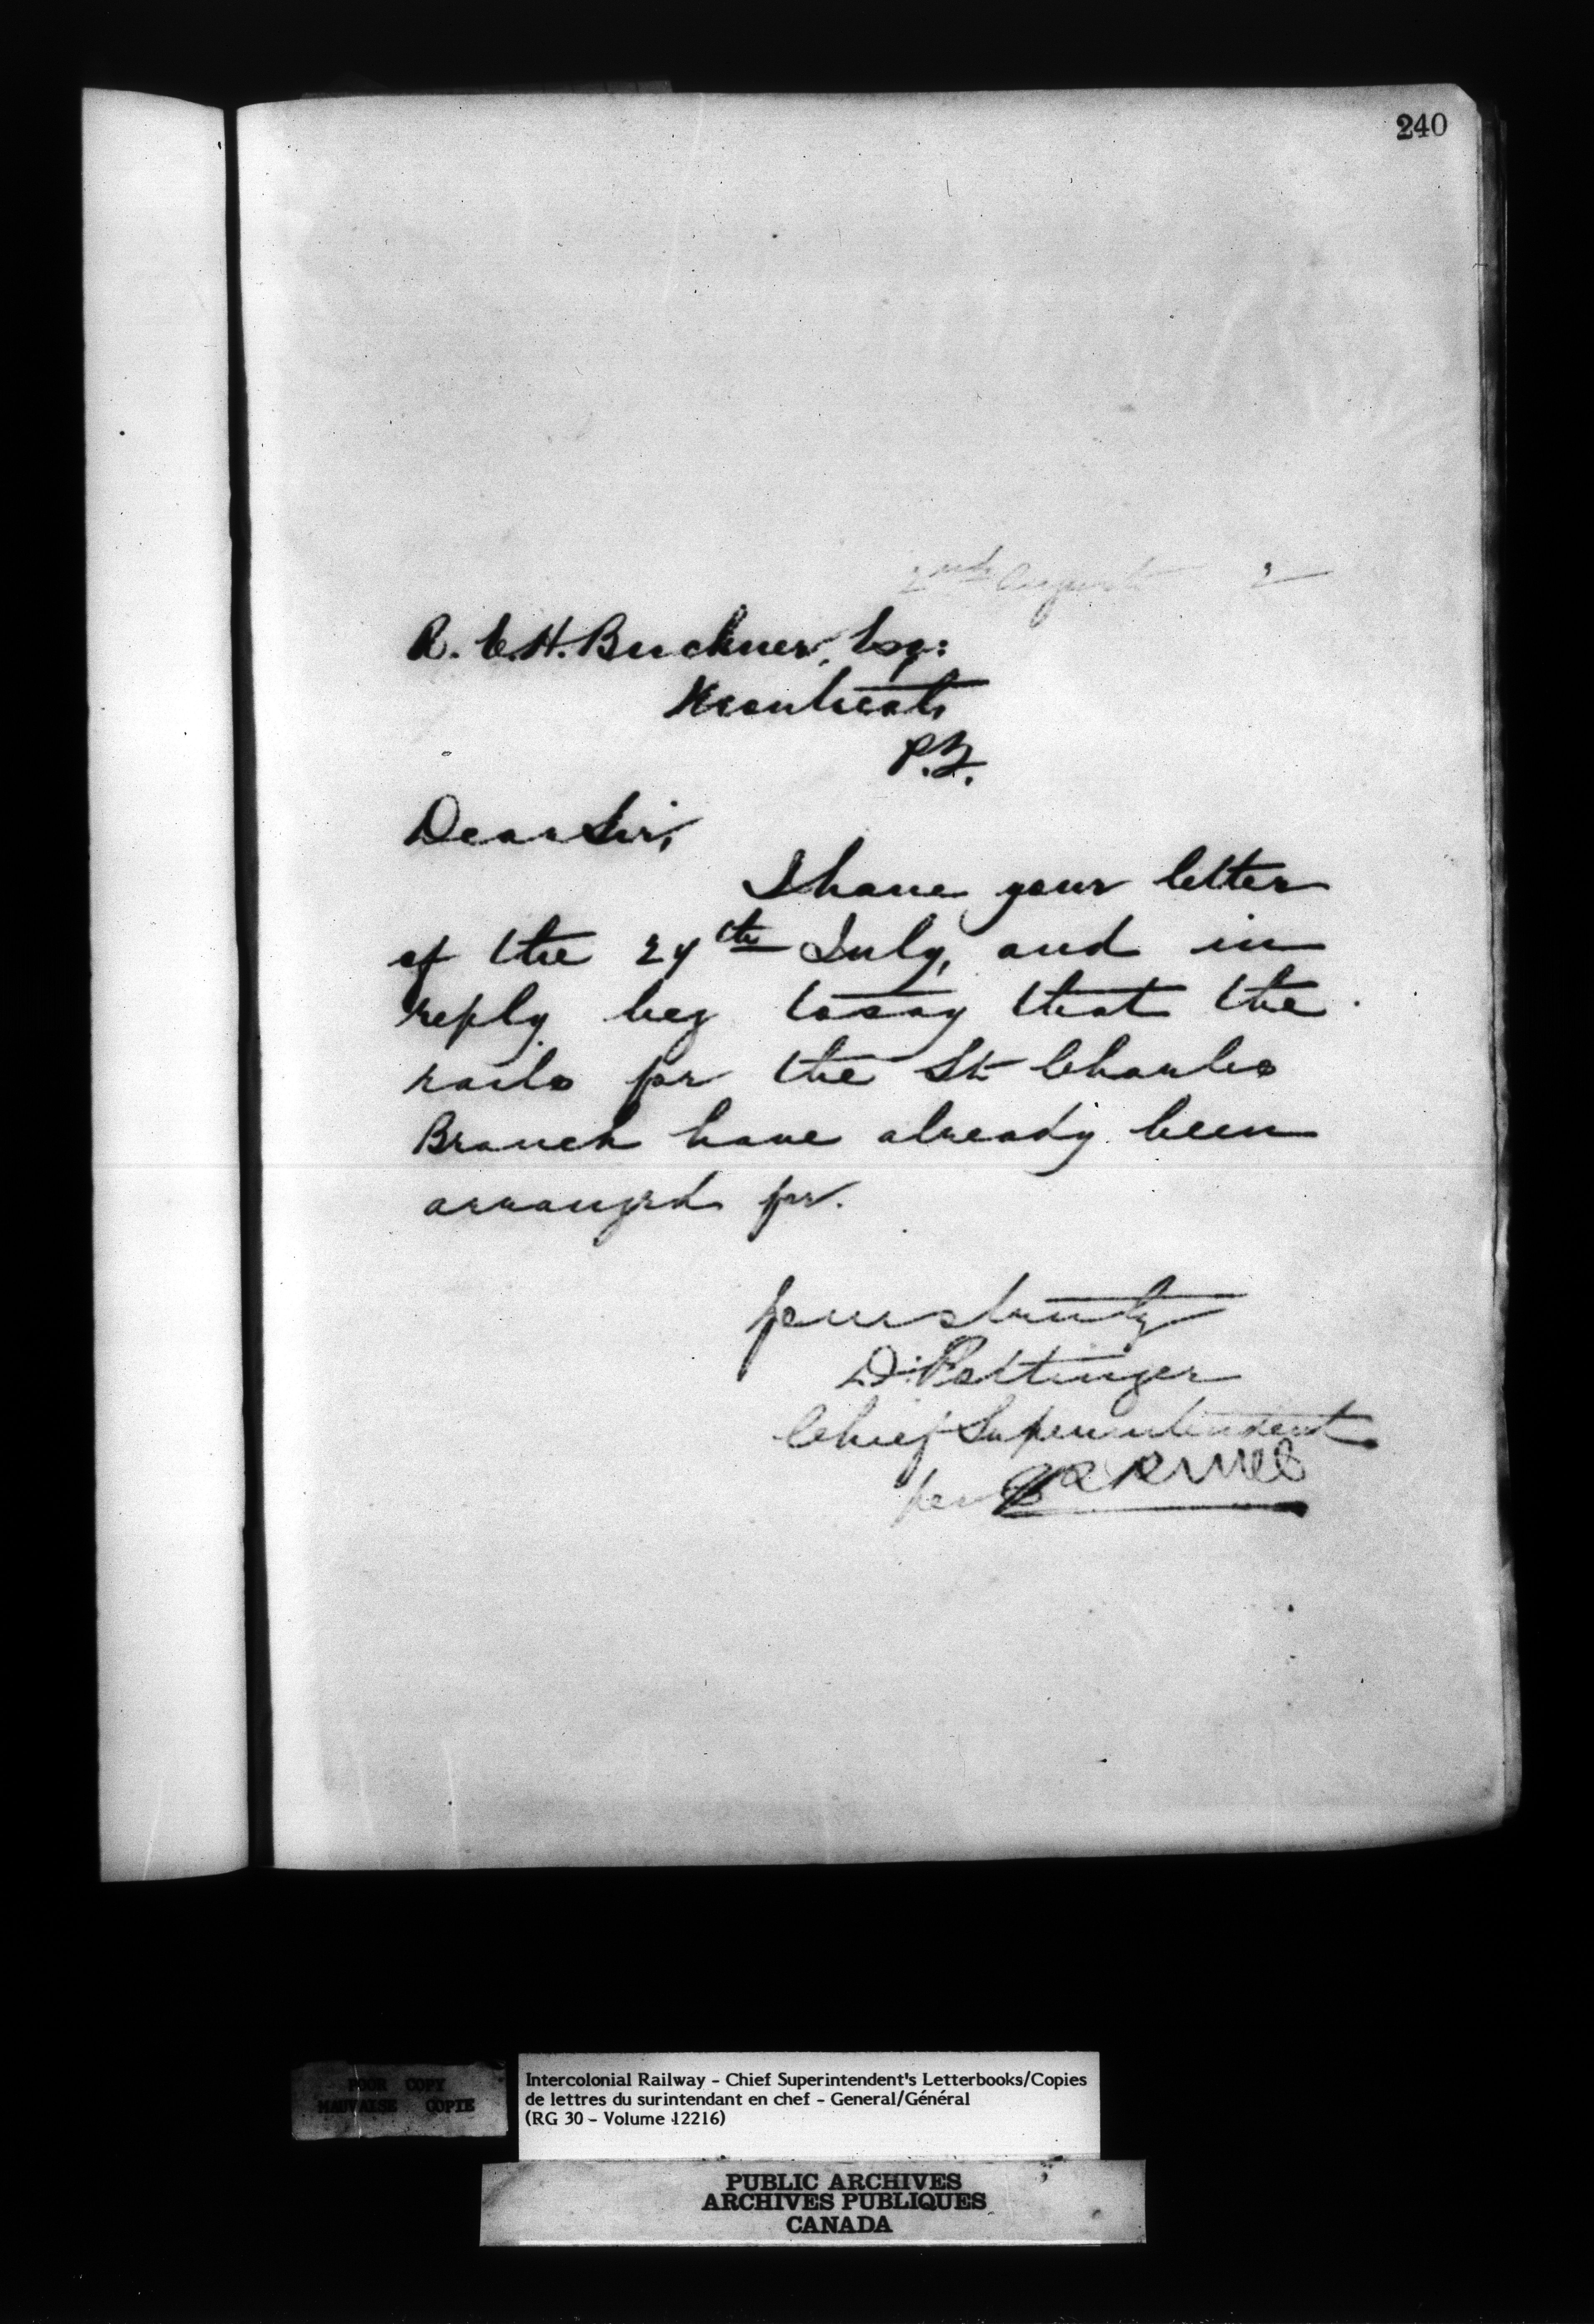 240
2nd August 2
R. C.H. Buckner, Esq:
Montreal,
P.Q.
Dear Sir,
I have your letter
of the 24th July, and in
reply beg to say that the
rails for the St Charles
Branch have already been
arranged for.
Yours truly
D. Pottinger
Chief Superintendent
per
POOR COPY
MAUVAISE COPIE
Intercolonial Railway - Chief Superintendent's Letterbooks/Copies
de lettres du surintendant en chef - General/Général
(RG 30 - Volume 12216)
PUBLIC ARCHIVES
ARCHIVES PUBLIQUES
CANADA